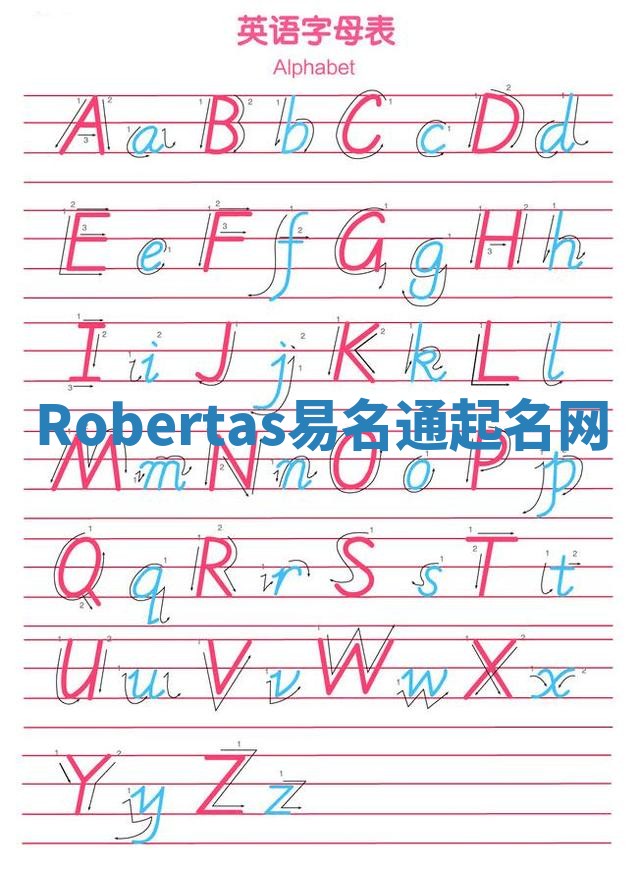 英语字母表
Alphabet
A a B b C c D d
E e F f G g H h
I i J j K k L l
Robertas易名通起名网
M m N n O o P p
Q q R r S s T t
U u V v W w X x
Y y Z z